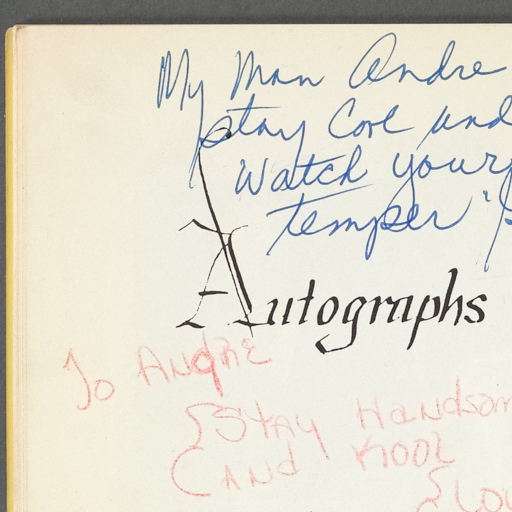 My Man Andre
stay Cool and
watch your
temper"
Autographs
To Andre
Stay Handsom
and Kool